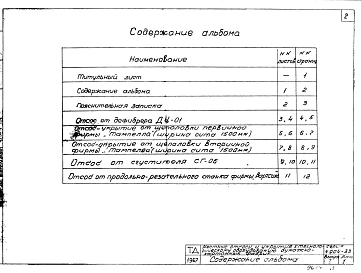 2
Содержание альбома
Наименование
NN листов
NN страниц
Титульный лист — 1
Содержание альбома 1 2
Пояснительная записка 2 3
Отсос от дефибрера 01 3,4 4,5
Отсос-укрытие от щеполовки первичной
фирмы „Тампелла" (ширина сита 1500мм) 5,6 6,7
Отсос-укрытие от щеполовки вторичной
фирмы „Тампелла" (ширина сита 1500мм) 7,8 8,9
Отсос от сгустителя СГ-05 9,10 10,11
Отсос от продольно-резательного станка фирмы 11 12
ТД
1967
Местные отсосы и укрытия
Содержание альбома
1